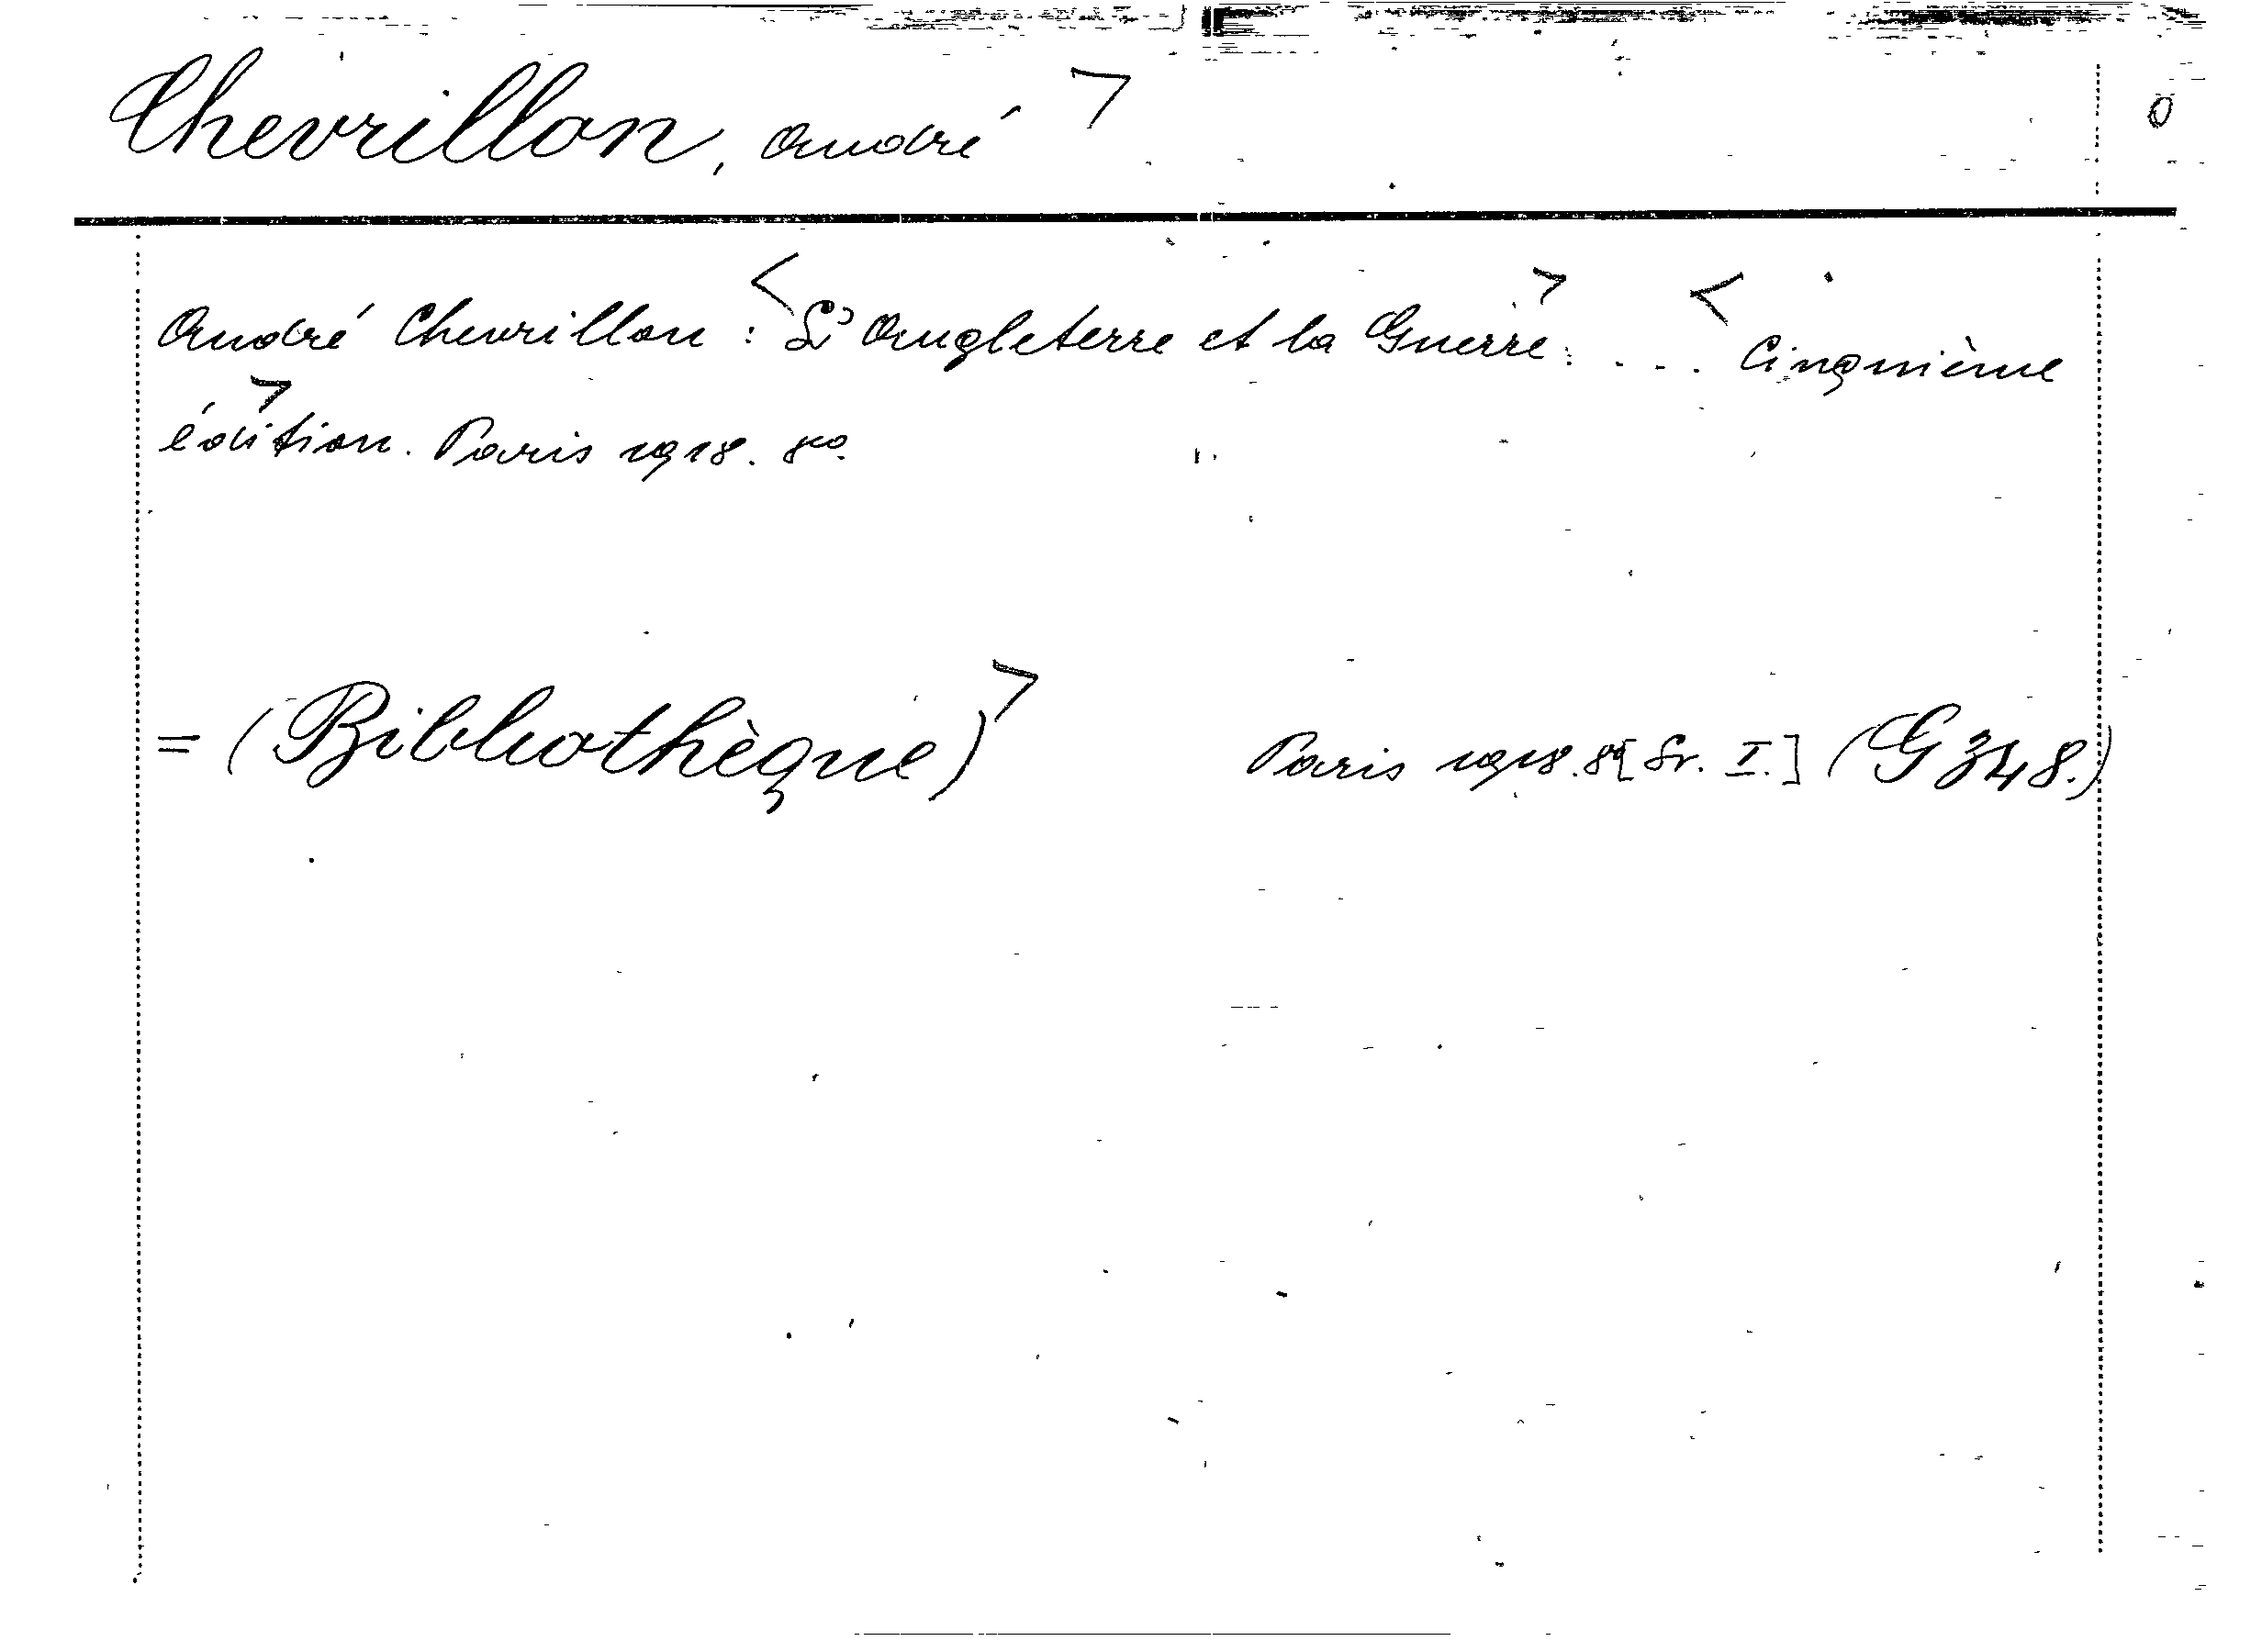 Chevrillon, André ⁊ 0
André Chevrillon: <L'Angleterre et la Guerre>. ... <Cinquième
édition>. Paris 1918. 8vo.
= (Bibliothèque)> Paris 1918. 8º [Sr. I.] (G 348.)